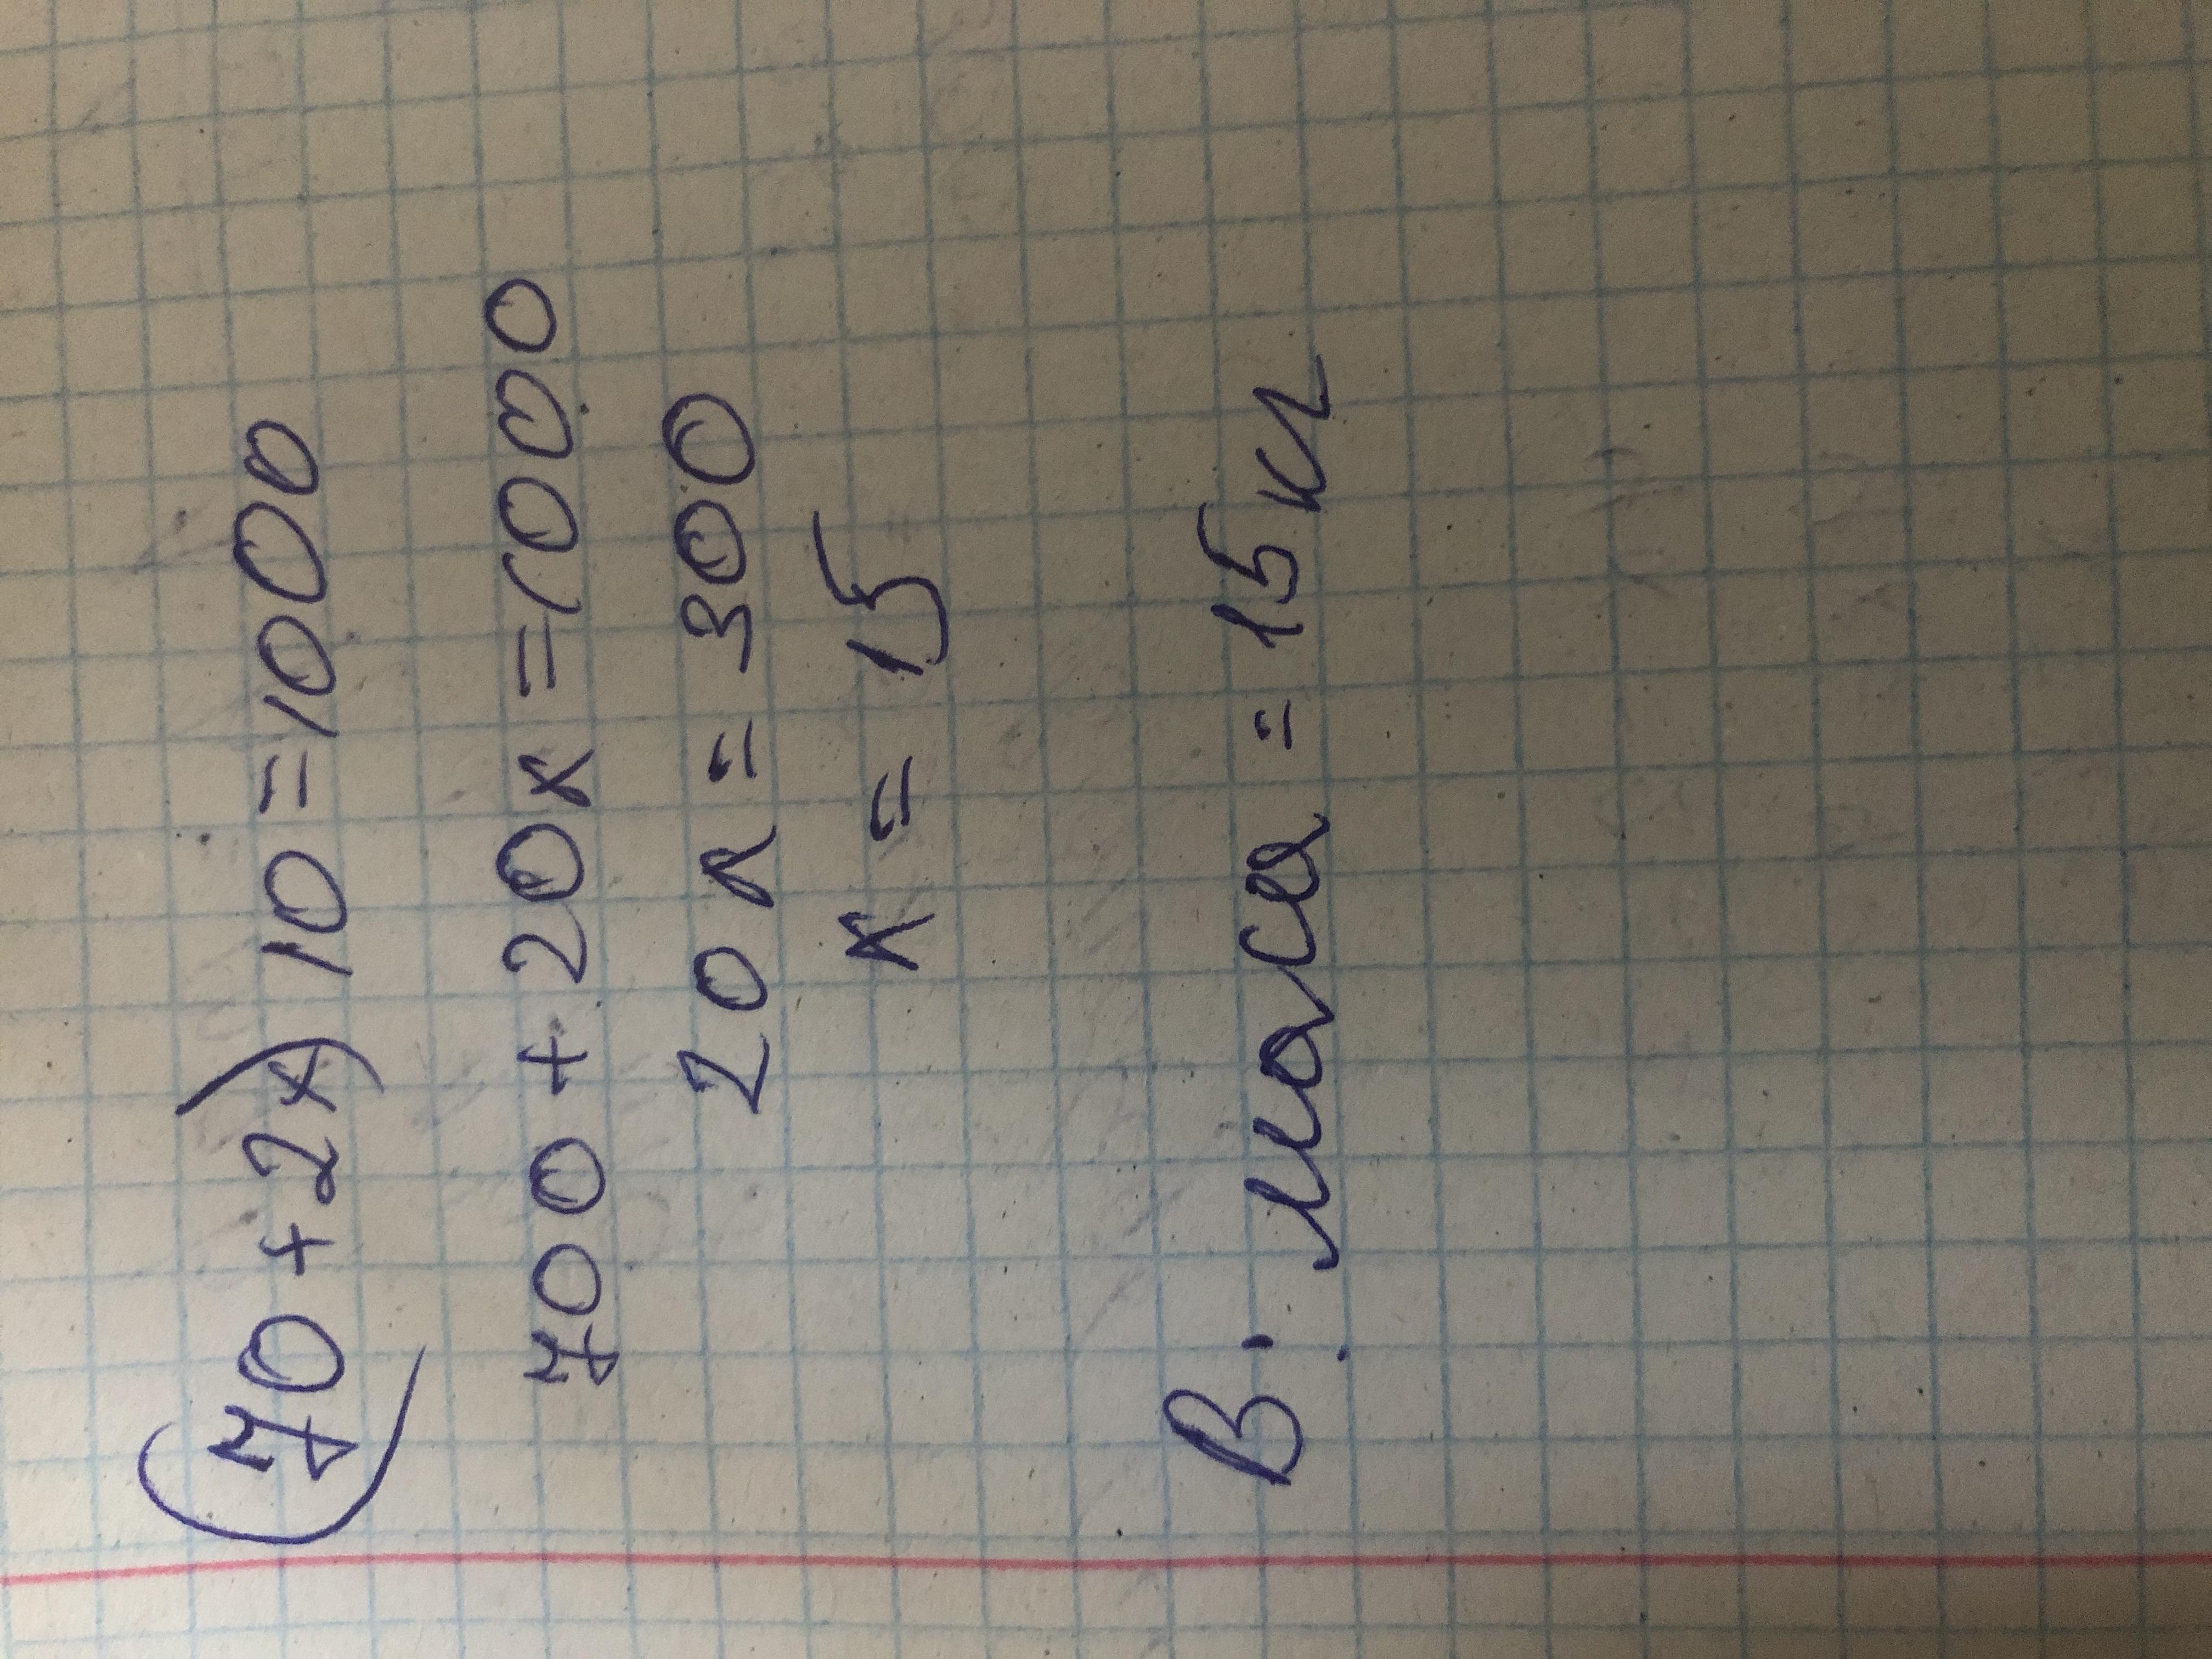 (70 + 2x) 10 = 1000
700 + 20x = 1000
20x = 300
x = 15
В: маса = 15 кг